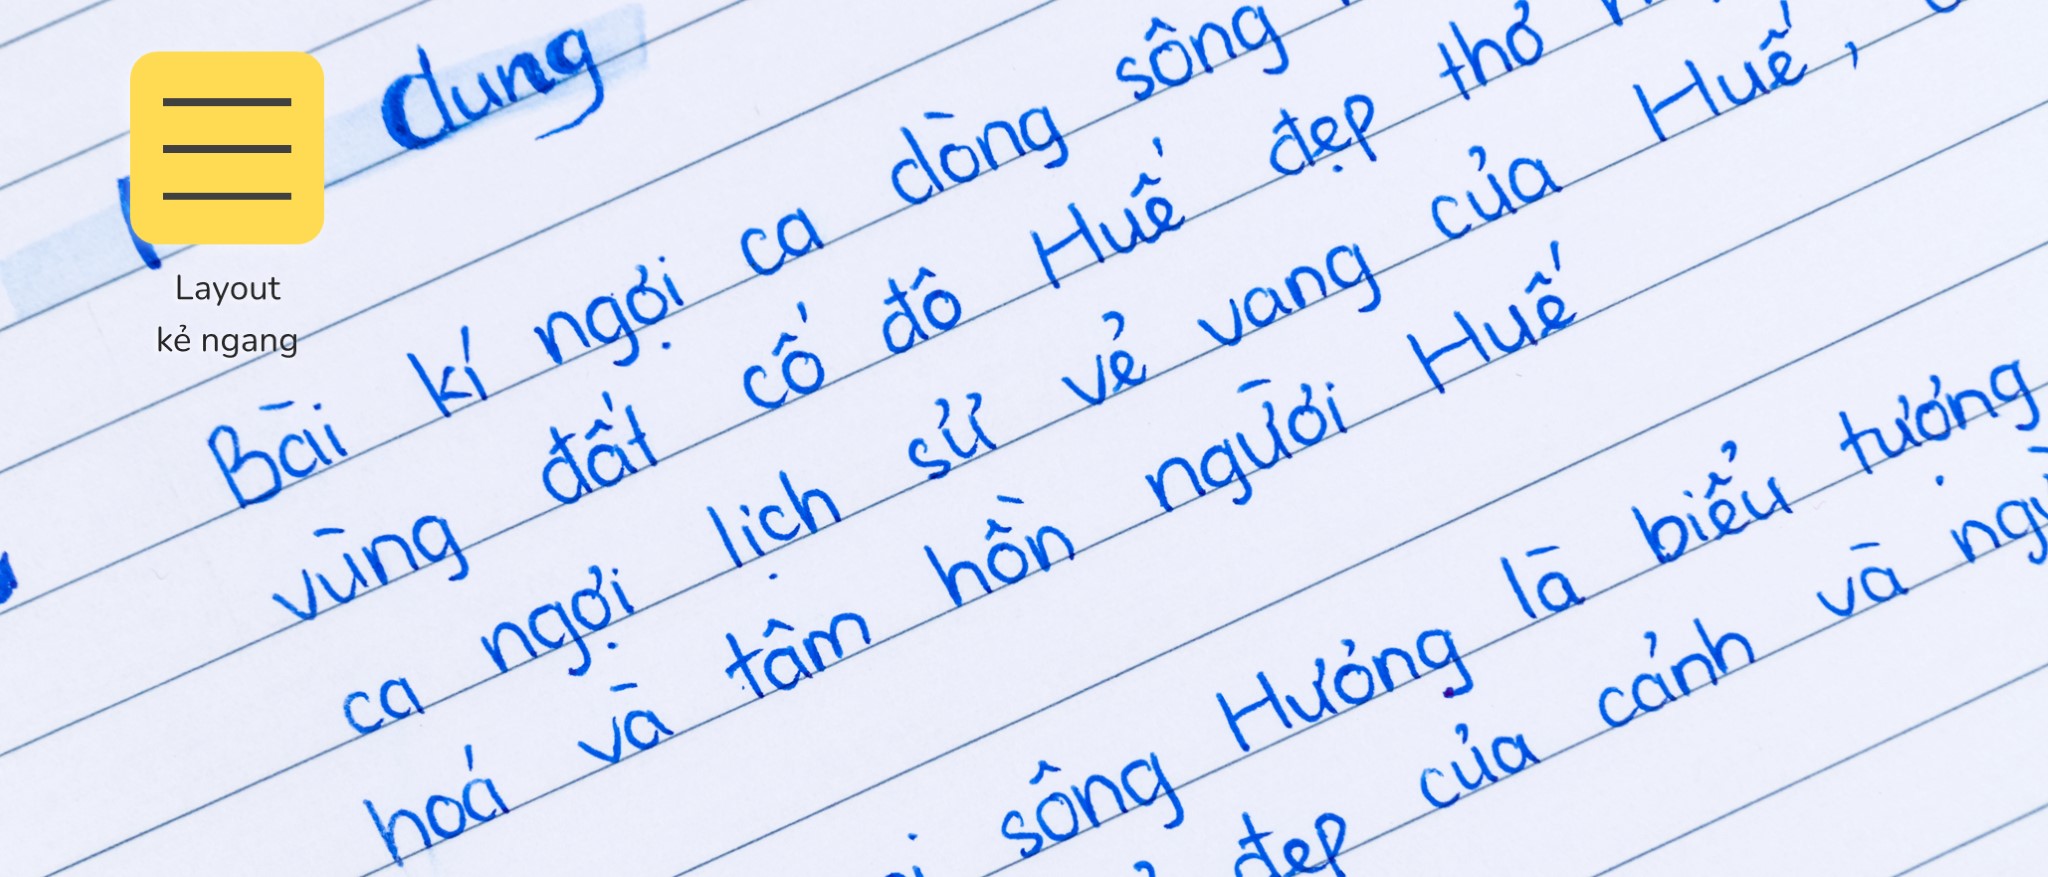 dung
Layout
kẻ ngang
Bài kí ngợi ca dòng sông
vùng đất cố đô Huế đẹp thơ
ca ngợi lịch sử vẻ vang của Huế,
hoá và tâm hồn người Huế
sông Hương là biểu tượng
đẹp của cảnh và